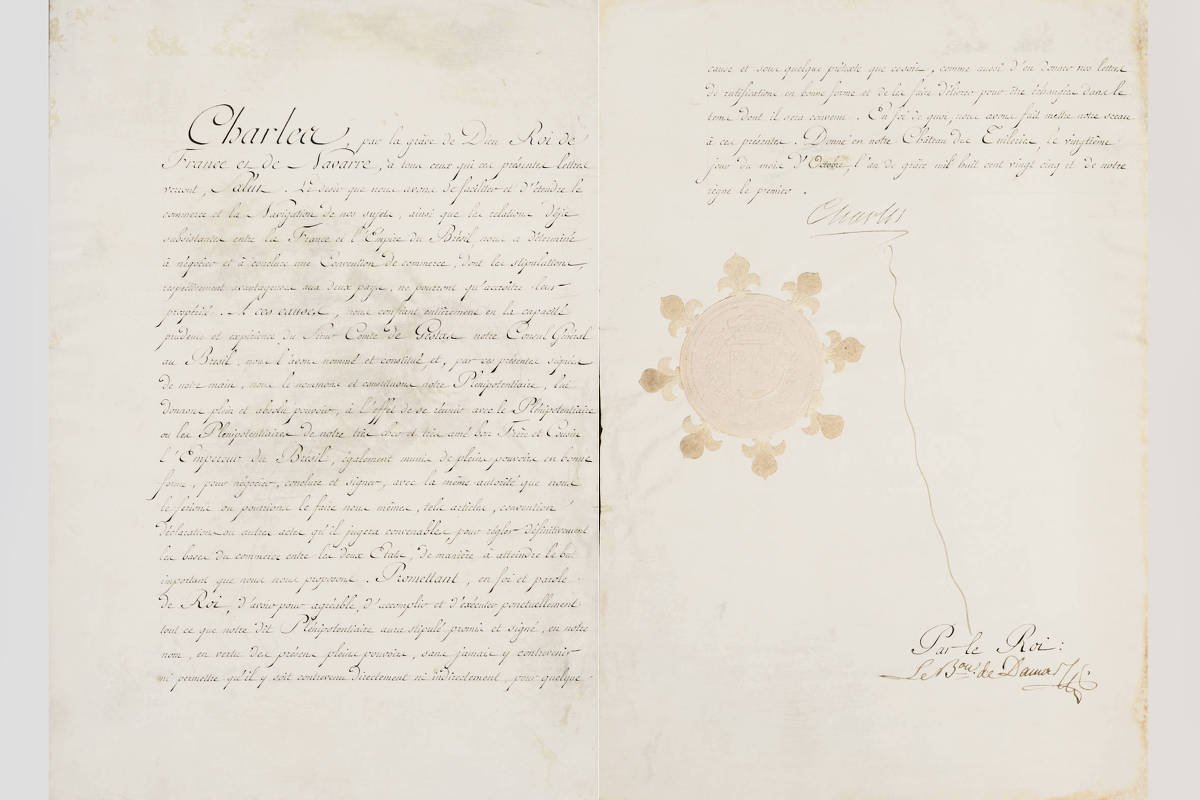 Charles, par la grâce de Dieu Roi de
France et de Navarre, à tous ceux qui ces présentes lettres
verront, Salut. Le desir que nous avons de faciliter et d'étendre le
commerce et la Navigation de nos sujets, ainsi que les relations déjà
subsistantes entre la France et l'Empire du Brésil nous a déterminé
à négocier et à conclure une Convention de commerce, dont les stipulations,
respectivement avantageuses aux deux pays, ne pourront qu'accroître leur
prospérité. A ces causes, nous confiant entièrement en la capacité
prudence et expérience du Sieur Comte de Gestas notre Consul Général
au Brésil, nous l'avons nommé et constitué, et, par ces présentes signées
de notre main, nous le nommons et constituons notre Plénipotentiaire, lui
donnons plein et absolu pouvoir, à l'effet de se réunir avec le Plénipotentiaire
ou les Plénipotentiaires de notre très cher et très amé bon Frère et Cousin
l'Empereur du Brésil, également munis de pleins pouvoirs en bonne
forme, pour négocier, conclure et signer, avec la même autorité que nous
le ferions ou pourrions le faire nous mêmes, tels articles, convention
déclarations ou autres actes qu'il jugera convenables pour régler définitivement
les bases du commerce entre les deux Etats, de manière à atteindre le but
important que nous nous proposons. Promettant, en foi et parole
de Roi, d'avoir pour agréable, d'accomplir et d'exécuter ponctuellement
tout ce que notre dit Plénipotentiaire aura stipulé promis et signé, en notre
nom, en vertu des présens pleins pouvoirs, sans jamais y contrevenir
ni permettre qu'il y soit contrevenu directement ni indirectement, pour quelque
cause et sous quelque prétexte que ce soit, comme aussi d'en donner nos lettres
de ratification en bonne forme et de les faire délivrer pour être échangées dans le
tems dont il sera convenu. En foi de quoi, nous avons fait mettre notre sceau
à ces présentes. Donné en notre Château des Tuileries, le vingtième
jour du mois d'Octobre, l'an de grâce mil huit cent vingt cinq et de notre
règne le premier.
Charles
Par le Roi:
Le Bon. de Damas